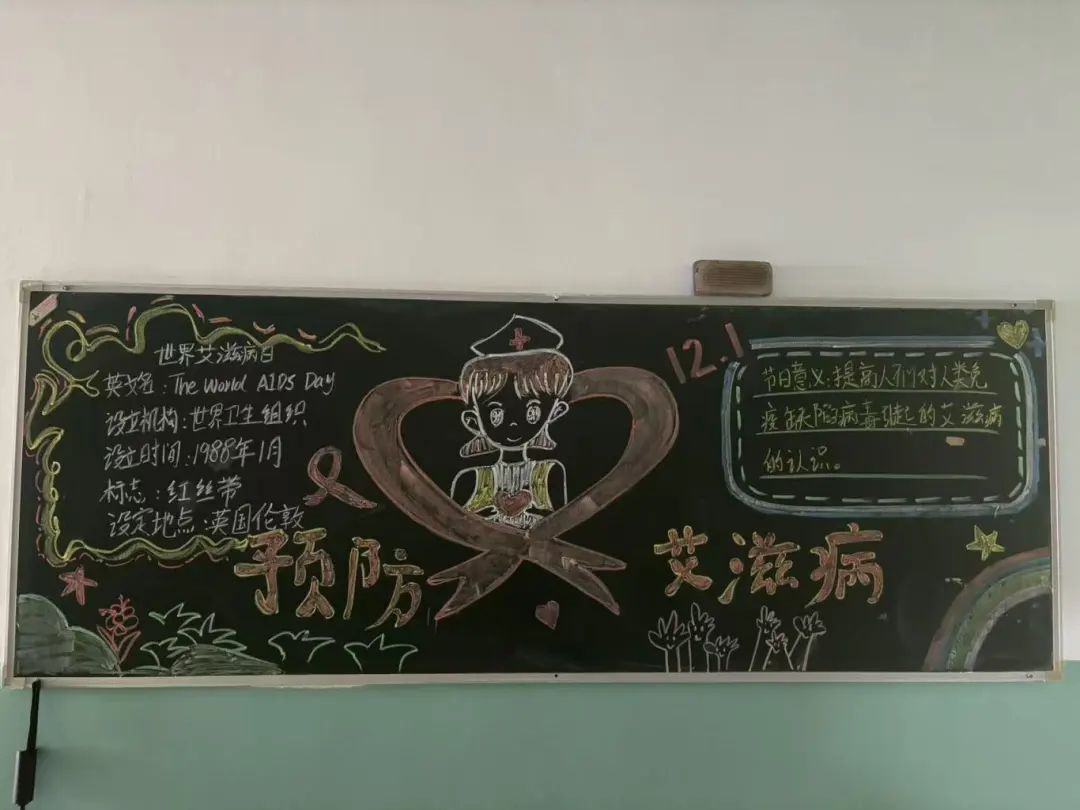 世界艾滋病日
英文名:The World AIDS Day
设立机构:世界卫生组织
设立时间:1988年1月
标志:红丝带
设定地点:英国伦敦
预防
12.1
节日意义:提高人们对人类免
疫缺陷病毒引起的艾滋病
的认识。
艾滋病